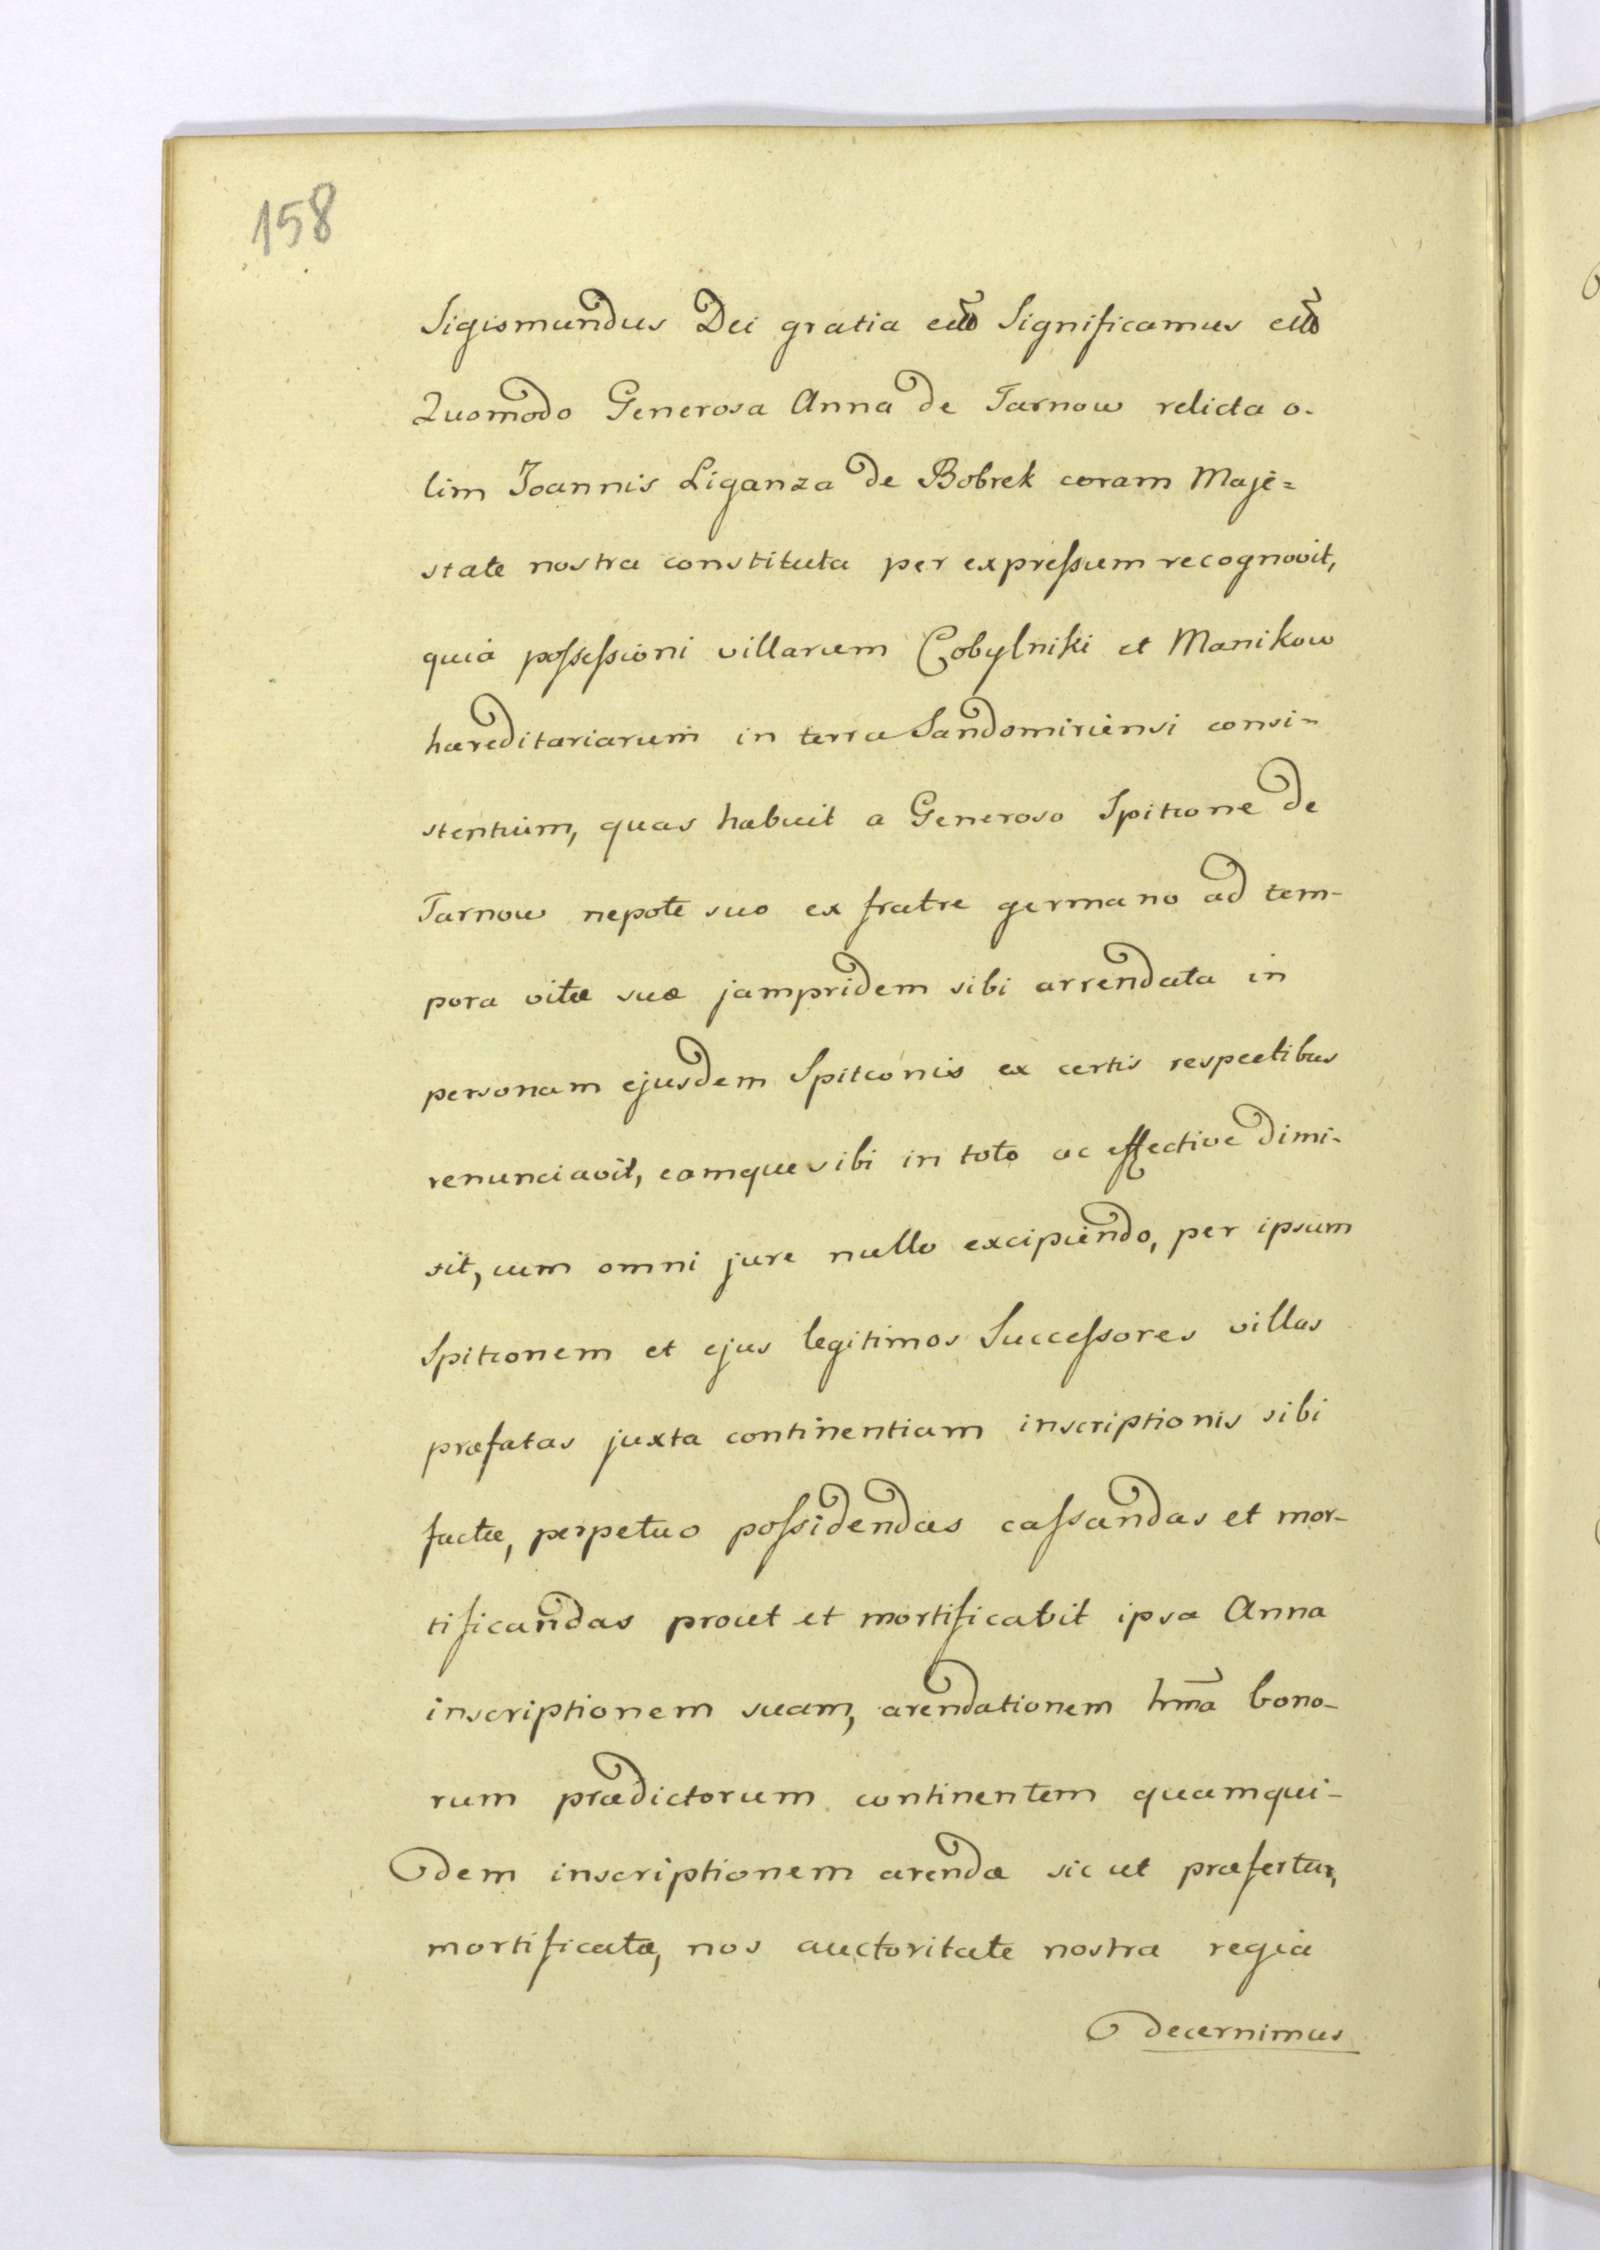 158
Sigismundus Dei gratia etc̃ Significamus etc̃
Quomodo Generosa Anna de Tarnow relicta o-
lim Joannis Liganza de Bobrek coram Maje=
state nostra constituta per expressum recognovit,
quia possessioni villarum Cobylniki et Manikow
hæreditariarum in terra Sandomiriensi consi-
stentium, quas habuit a Generoso Spitcone de
Tarnow nepote suo ex fratre germano ad tem-
pora vitæ suæ jampridem sibi arrendata in
personam ejusdem Spitconis ex certis respectibus
renunciavit, eamque sibi in toto ac effective dimi-
sit, cum omni jure nullo excipiendo, per ipsum
Spitconem et ejus legitimos Successores villas
præfatas juxta continentiam inscriptionis sibi
factæ, perpetuo possidendas cassandas et mor-
tificandas prout et mortificabit ipsa Anna
inscriptionem suam, arendationem hm̃a bono-
rum prædictorum continentem quamqui-
dem inscriptionem arendæ sic ut præfertur,
mortificatæ, nos auctoritate nostra regia
decernimus